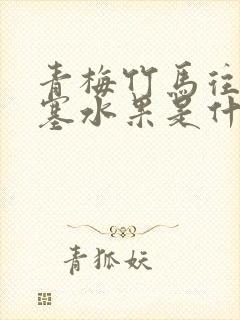 青梅竹馬往
塞水果是什
青狐妖